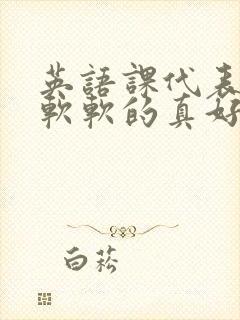 英語課代表
軟軟的真好
白菘